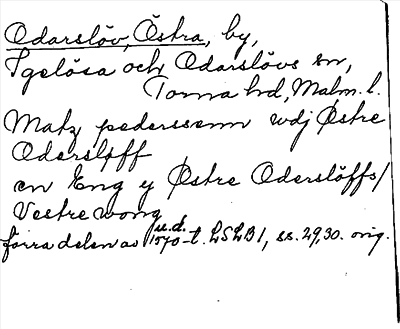 Odarslöv, Östra, by,
Igelösa och Odarslövs sn,
Torna hd, Malm. l.
Matz pederssenn wdj Østre
Odersløff
en Eng y Østre Oderslöffs/
Vestre wong
förra delen av u.d. 1570-t. LSLB 1, ss. 29, 30. orig.